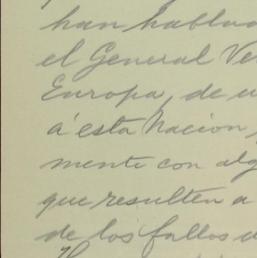 han hablad
el General Ve
Europa, de u
á esta Nacion,
mente con alg
que resulten a
de los fallos